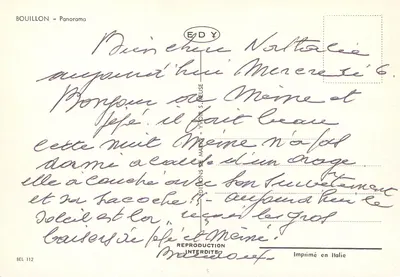 BOUILLON – Panorama
EDY
Bien cher Nathalie
aujourd'hui Mercredi 6.
Bonjour de Mème et
pépé. il fait beau
cette nuit Mème n'a pas
dormi a cause d'un orage
elle a couché avec son survêtement
et sa sacoche!! – aujourd'hui le
soleil est la, les gros
baisers de pépé et Mémé.
REPRODUCTION
INTERDITE
BEL 112
Imprimé en Italie